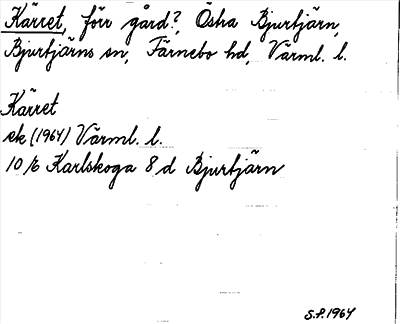 Kärret, förr gård?, Östra Bjurtjärn,
Bjurtjärns sn, Färnebo hd, Värml. l.
Kärret
ek (1964) Värml. l.
10/6 Karlskoga 8 d Bjurtjärn
S.P. 1964